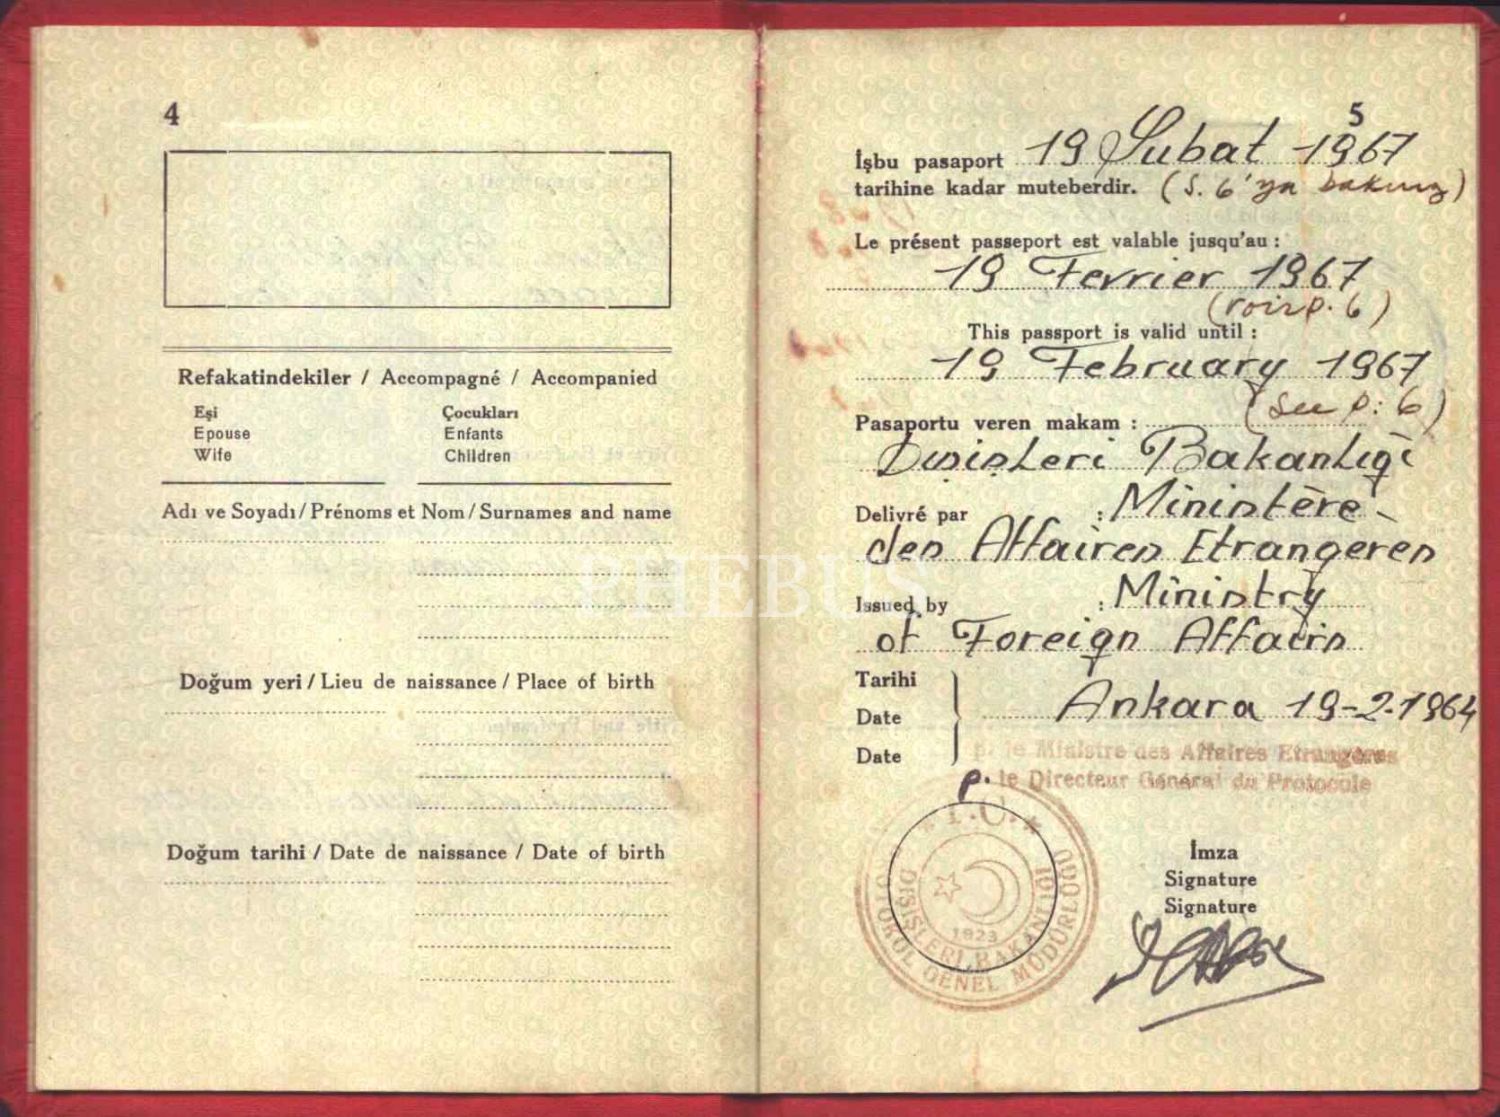 4
Refakatindekiler / Accompagné / Accompanied
Eşi
Epouse
Wife
Çocukları
Enfants
Children
Adı ve Soyadı / Prénoms et Nom / Surnames and name
Doğum yeri / Lieu de naissance / Place of birth
Doğum tarihi / Date de naissance / Date of birth
5
İşbu pasaport 19 Şubat 1967
tarihine kadar muteberdir. (S. 6'ya bakınız)
Le présent passeport est valable jusqu'au :
19 Fevrier 1967
(voir p. 6)
This passport is valid until :
19 February 1967
(see p. 6)
Pasaportu veren makam :
Dışişleri Bakanlığı
Delivré par : Ministère
des Affaires Etrangeres
Issued by : Ministry
of Foreign Affairs
Tarihi
Date
Date
Ankara 19-2-1964
p. le Ministre des Affaires Etrangères
p. le Directeur Général du Protocole
T.C.
1923
DIŞİŞLERİ BAKANLIĞI
PROTOKOL GENEL MÜDÜRLÜĞÜ
İmza
Signature
Signature
PHEBUS